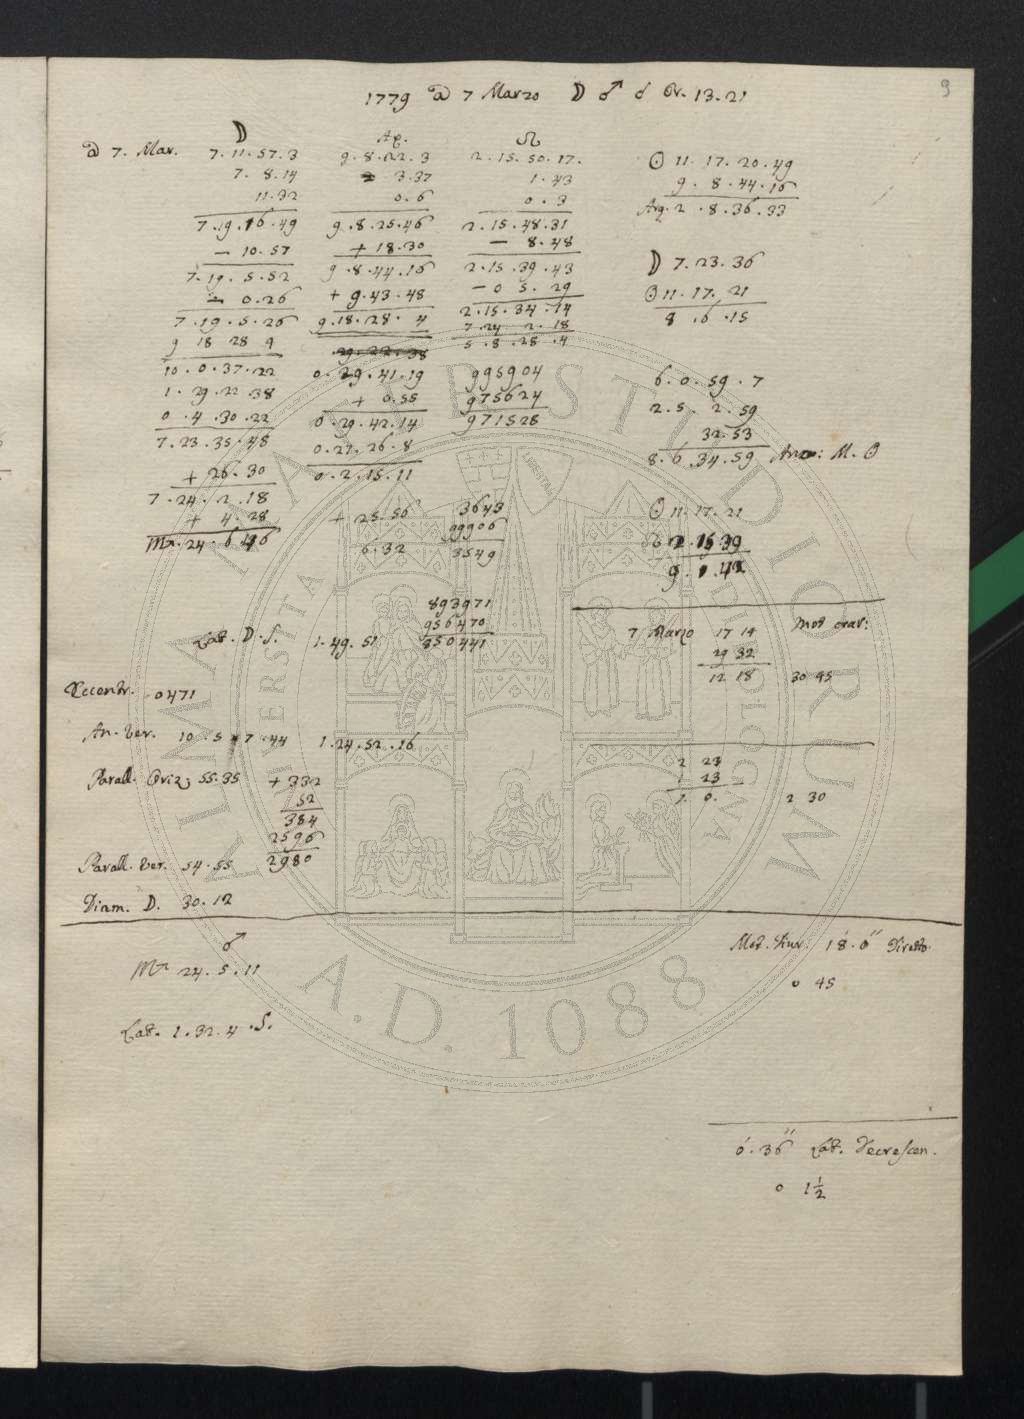 9
1779 a 7 Marzo ☽ ♂ ☌ Or. 13.21
☽ Ap. ☊
a 7. Mar. 7.11.57.3 9.8.22.3 2.15.50.17. ☉ 11.17.20.49
7.8.14 3.37 1.43 9.8.44.16
11.32 0.6 0.3 Arg. 2.8.36.33
7.19.16.49 9.8.25.46 2.15.48.31
— 10.57 + 18.30 — 8.48 ☽ 7.23.36
7.19.5.52 9.8.44.16 2.15.39.43 ☉ 11.17.21
— 0.26 + 9.43.48 — 0 5.29 8.6.15
7.19.5.26 9.18.28.4 2.15.34.14
9 18 28 4 29.22.38 7.24 2.18
10.0.37.22 0.29.41.19 5.8.28.4
1.29.22.38 + 0.55 995904 6.0.59.7
0.4.30.22 0.29.42.14 975624 2.5.2.59
7.23.35.48 0.27.26.8 971528 32.53
+ 26.30 0.2.15.11 8.6.34.59 M. ☉
7.24.2.18 + 25.56 3643 ☉ 11.17.21
+ 4.28 6.32 99906 ☊ 2.15 39
♏ 24.6.46 3549 9.1.42
893971
956470
850441
Lat. D. S. 1.49.51
7 Marzo 17 14 Mot orar:
29 32
12 18 30 45
Eccentr. 0471
An. ver. 10.5 7.44 1.24.52.16
2 23
1 23
1 0. 2 30
Parall. Oriz. 55.35 + 332
52
384
2596
2980
Parall. ver. 54.55
Diam. D. 30.12
♂
♏ 24.5.11
Mot. diur: 18'.0'' Diretto.
0 45
Lat. 1.32.4.S.
0'.36'' Lat. Decrescen.
0 1½
ALMA MATER STUDIORUM
UNIVERSITÀ DI BOLOGNA
LIBERTAS
A.D. 1088